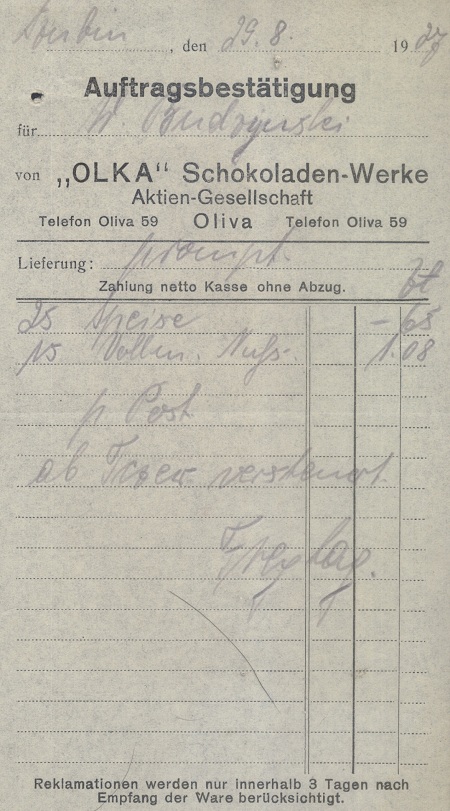 , den 29. 8. 1927
Auftragsbestätigung
für W. Budzynski
von „OLKA“ Schokoladen-Werke
Aktien-Gesellschaft
Telefon Oliva 59 Oliva Telefon Oliva 59
Lieferung: prompt.
Zahlung netto Kasse ohne Abzug. Zł
25 Speise – 65
15 Vollm. Nuss. 1.08
p. Post
ab Tczew versteuert.
Freytag.
Reklamationen werden nur innerhalb 3 Tagen nach
Empfang der Ware berücksichtigt.